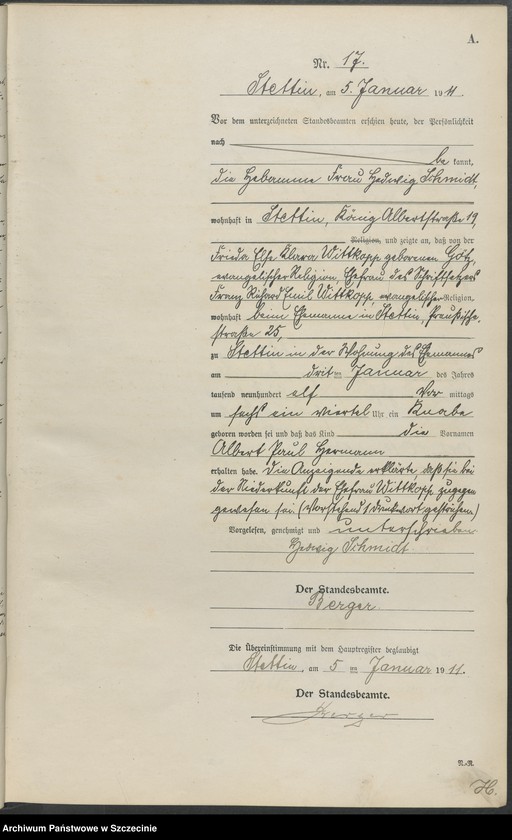 A.
Nr. 17.
Stettin, am 5. Januar 1911.
Vor dem unterzeichneten Standesbeamten erschien heute, der Persönlichkeit
nach
be kannt,
die Hebamme Frau Hedwig Schmidt,
wohnhaft in Stettin, König Albertstraße 19,
Religion, und zeigte an, daß von der
Frieda Else Klara Wittkopp geborenen Götz,
evangelischer Religion, Ehefrau des Schriftsetzers
Franz Richard Emil Wittkopp, evangelischer Religion,
wohnhaft beim Ehemanne in Stettin, Preußische-
straße 25,
zu Stettin in der Wohnung des Ehemannes
am dritten Januar des Jahres
tausend neunhundert elf Vor mittags
um sechs ein viertel Uhr ein Knabe
geboren worden sei und daß das Kind die Vornamen
Albert Paul Hermann
erhalten habe. Die Anzeigende erklärte, daß sie bei
der Niederkunft der Ehefrau Wittkopp zugegen
gewesen sei. (Vorstehend 1 Druckwort gestrichen)
Vorgelesen, genehmigt und unterschrieben
Hedwig Schmidt
Der Standesbeamte.
Berger.
Die Übereinstimmung mit dem Hauptregister beglaubigt
Stettin, am 5 ten Januar 1911.
Der Standesbeamte.
Berger
H.
Archiwum Państwowe w Szczecinie